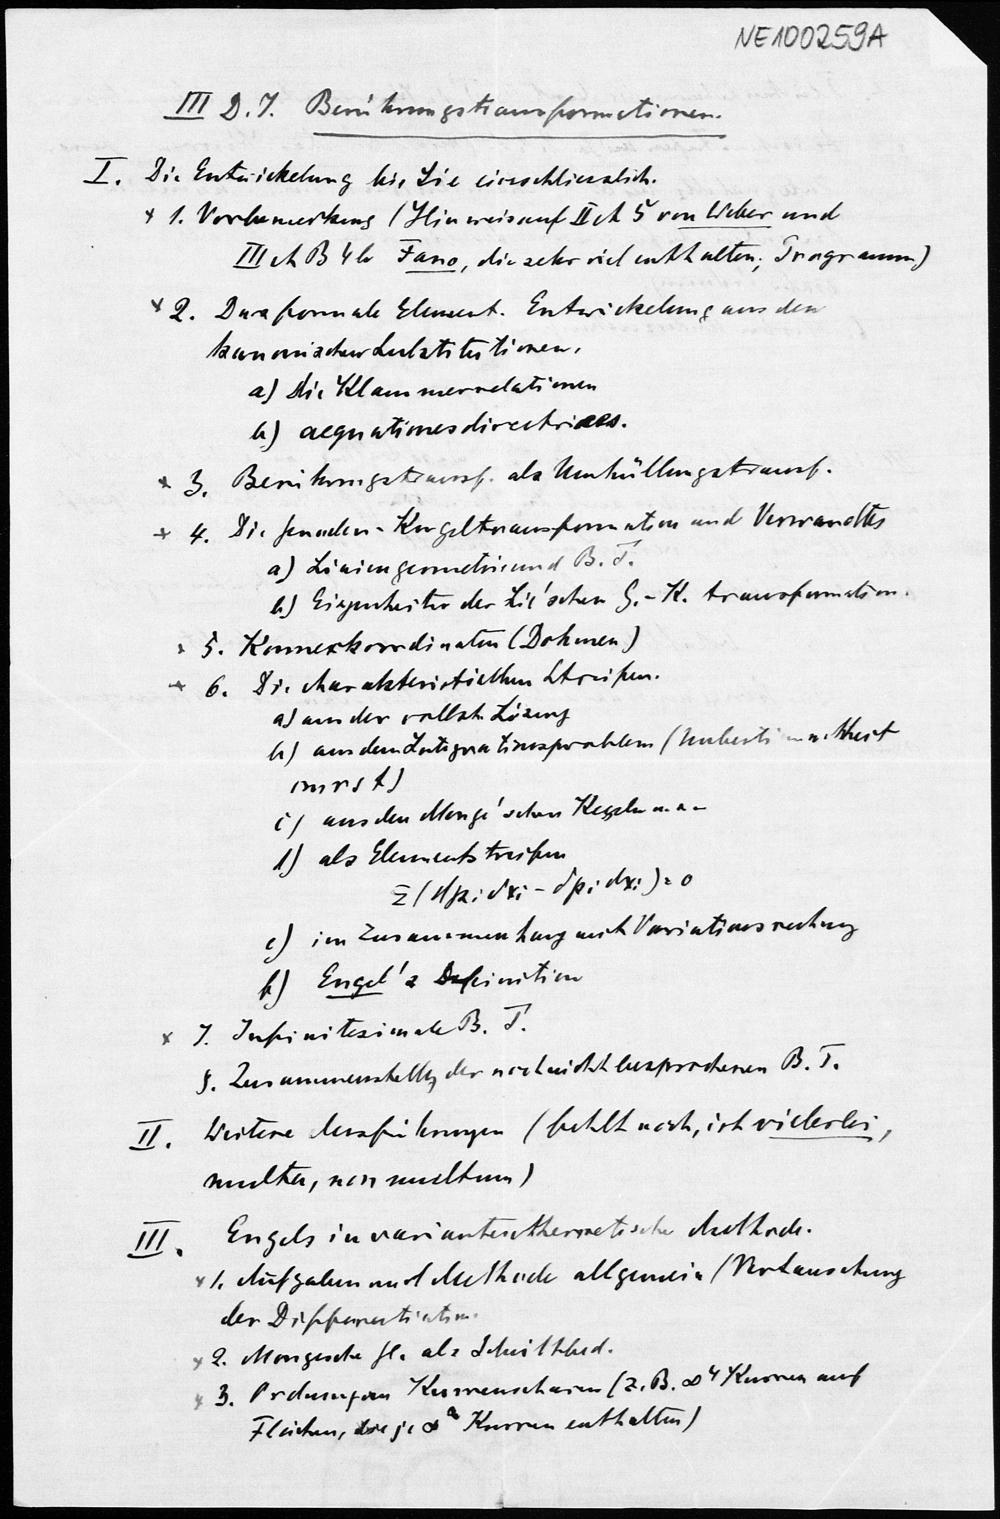 NE100259A
III D. 7. Berührungstransformationen.
I. Die Entwickelung bis Lie einschliesslich.
× 1. Vorbemerkung (Hinweis auf II A 5 von Weber und
III A B 4b Fano, die sehr viel enthalten; Programm)
× 2. Das formale Element. Entwickelung aus den
kanonischen Substitutionen.
a) Die Klammerrelationen
b) aequationes directrices.
× 3. Berührungstransf. als Umhüllungstransf.
× 4. Die Geraden-Kugeltransformation und Verwandtes
a) Liniengeometrie und B. T.
b) Eigenheiten der Lie'schen G.-K. transformation.
× 5. Konnexkoordinaten (Dohmen)
× 6. Die charakteristischen Streifen.
a) aus der vollst. Lösung
b) aus dem Integrationsproblem (Unbestimmtheit
von r s t)
c) aus den Monge'schen Kegeln
d) als Elementstreifen
Σ(dpi δxi − δpi dxi) = 0
e) im Zusammenhang mit Variationsrechnung
f) Engel's Definition
× 7. Infinitesimale B. T.
8. Zusammenstellg der noch nicht besprochenen B. T.
II. Weitere Ausführungen (fehlt noch, ist vielerlei,
multa, non multum)
III. Engels invariantentheoretische Methode.
× 1. Aufgaben und Methode allgemein (Vertauschung
der Differentiation.
× 2. Mongesche Gl. als
× 3. Ordnung von Kurvenscharen (z. B. ∞⁴ Kurven auf
Flächen, die je ∞ Kurven enthalten)